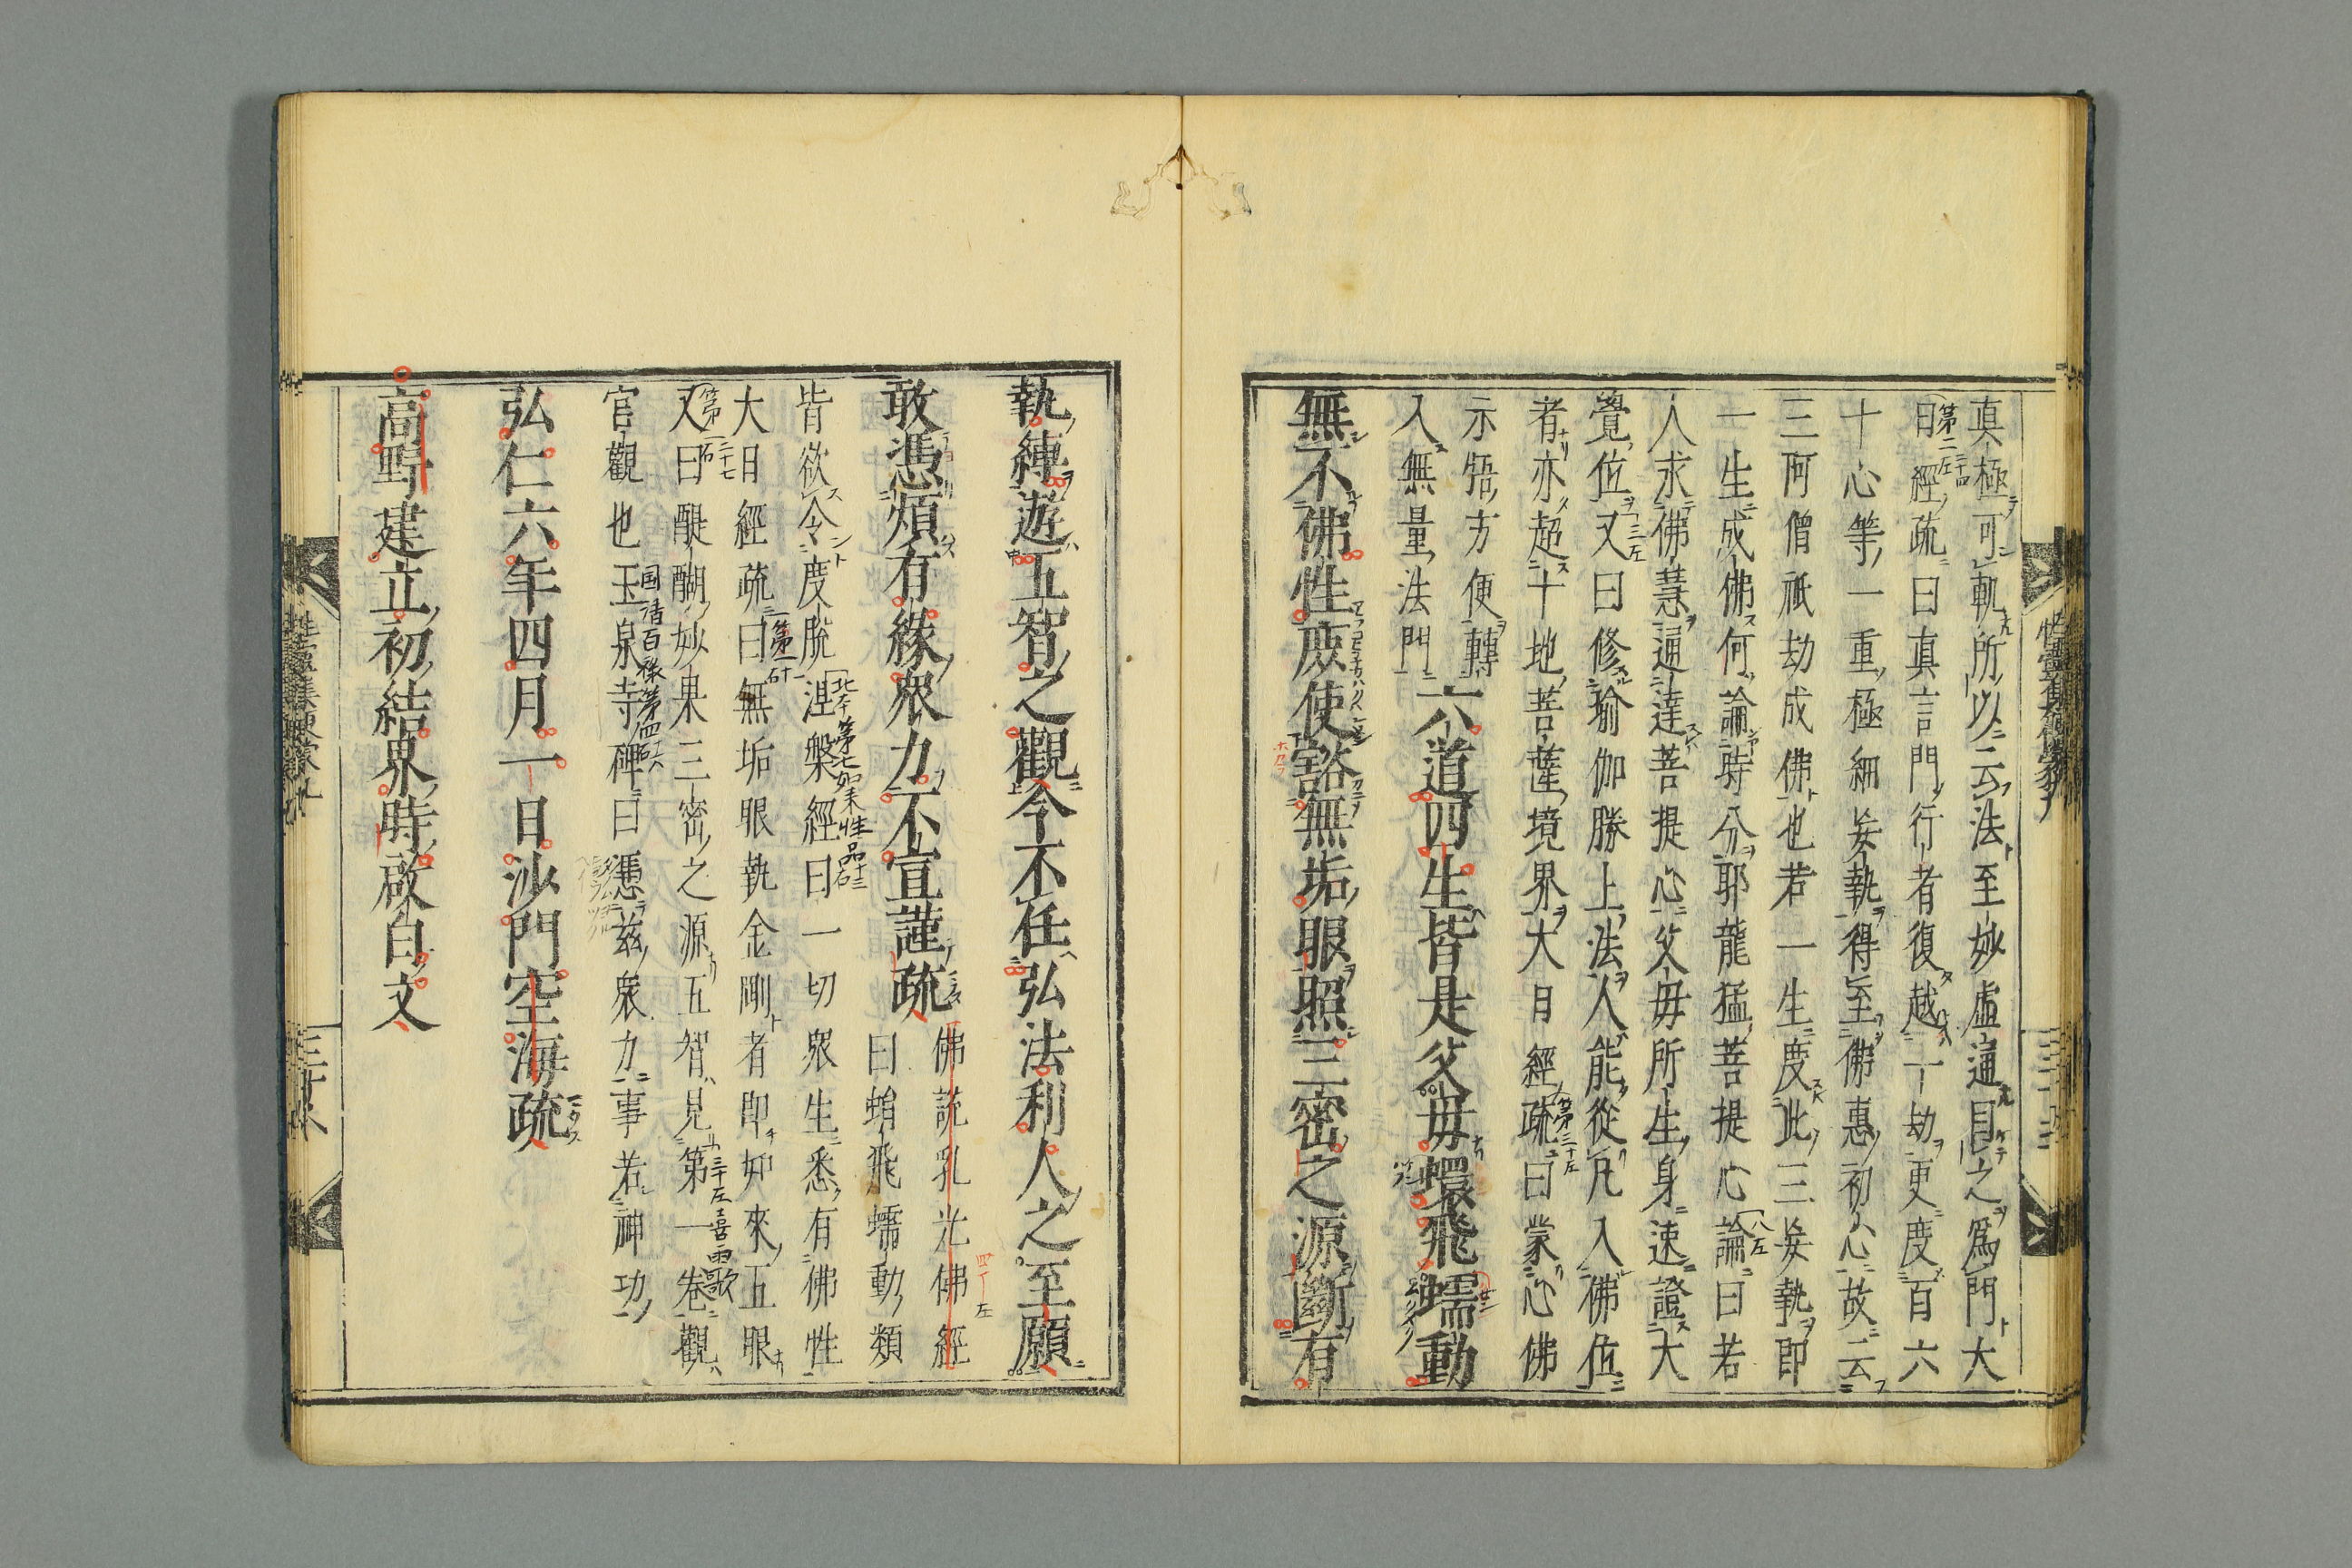 真極可軌所以云法至妙虛通目之爲門大
日經疏曰真言門行者復越一劫更度百六
十心等一重極細妄執得至佛惠初心故云
三阿僧祇劫成佛也若一生度此三妄執即
一生成佛何論時分耶龍猛菩提心論曰若
人求佛慧通達菩提心父母所生身速證大
覺位又曰修瑜伽勝上法人能從凡入佛位
者亦超十地菩薩境界大日經疏曰蒙心佛
示悟方便轉
入無量法門
六道四生皆是父母蠉飛蠕動
無不佛性庶使豁無垢眼照三密之源斷有
執縛遊五智之觀今不任弘法利人之至願
敢憑煩有緣衆力不宣謹疏
佛說乳光佛經
曰蜎飛蠕動類
皆欲令度脫涅槃經曰一切衆生悉有佛性
大日經疏曰無垢眼執金剛者即如來五眼
又曰醍醐妙果三密之源五智見第一卷觀
官觀也玉泉寺碑曰憑茲衆力事若神功
弘仁六年四月一日沙門空海疏
高野建立初結界時啟白文